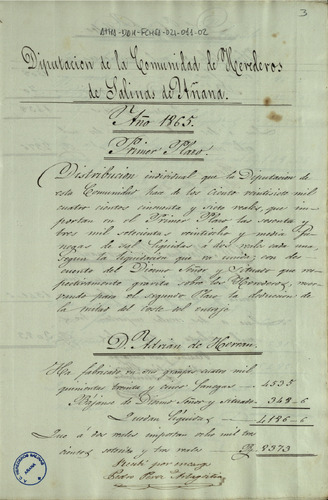 3
Diputacion de la Comunidad de Herederos
de Salinas de Añana.
Año 1865.
Primer Plazo.
Distribucion individual que la Diputacion de
esta Comunidad hace de los ciento veintisiete mil
cuatro cientos cincuenta y siete reales, que im-
portan en el Primer Plazo las sesenta y
tres mil setecientas veintiocho y media fa-
negas de sal líquidas á dos reales cada una,
segun la liquidacion que va unida; con des-
cuento del Diezmo Añejo y Situado que res-
pectivamente gravita sobre los Herederos, reser-
vando para el segundo Plazo la deduccion de
la mitad del coste del entroje
D. Adrian de Herran.
Ha fabricado en sus granjas cuatro mil
quinientas treinta y cinco fanegas 4535
Bájanse de Diezmo Añejo y situado 348-6
Quedan líquidas 4186-6
Que á dos reales importan ocho mil tres
cientos setenta y tres reales 8373
Recibí por encargo
Pedro